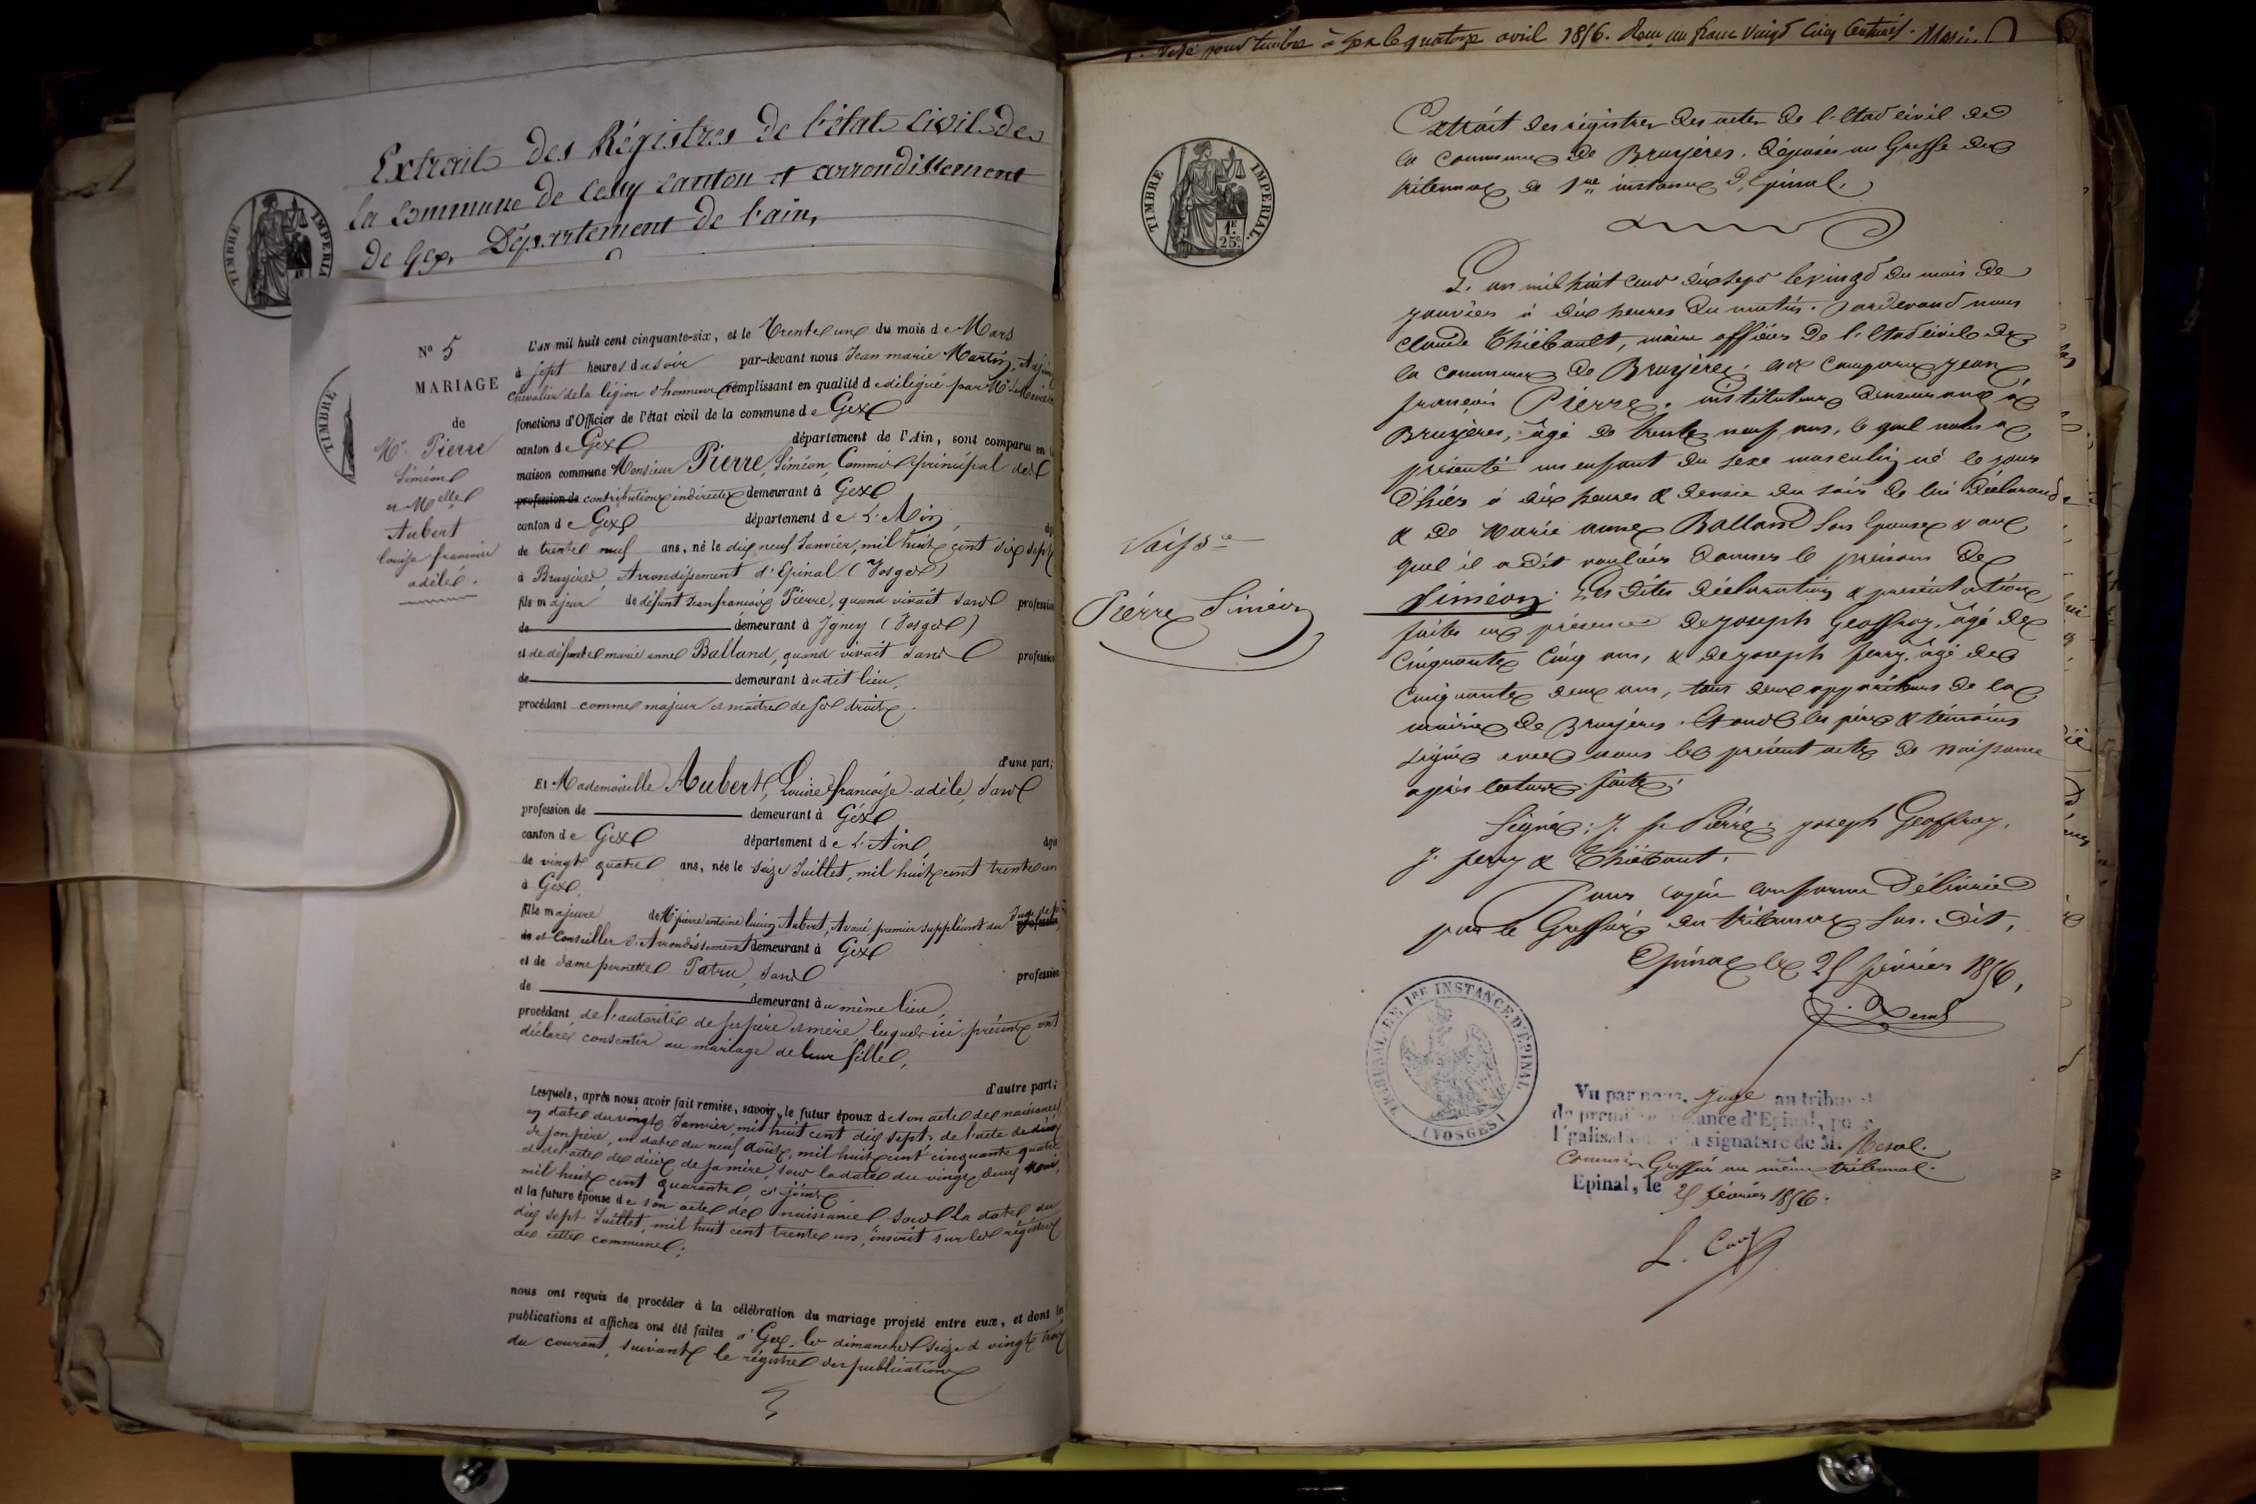 Extrait des Régistres de l'état civil de
la commune de Cessy canton et arrondissement
de Gex, Département de l'ain,
TIMBRE IMPERIA
TIMBRE
N° 5
MARIAGE
de
Mr Pierre
Siméon
et Melle
Aubert
louise françoise
adèle.
L'an mil huit cent cinquante-six, et le Trente un du mois de Mars
à sept heures du soir par-devant nous Jean marie Martin, Adjoint
chevalier de la légion d'honneur remplissant en qualité de délégué par Mr le Maire les
fonctions d'Officier de l'état civil de la commune de Gex
canton de Gex département de l'Ain, sont comparus en la
maison commune Monsieur Pierre, Siméon, Commis principal des
profession de contributions indirectes demeurant à Gex
canton de Gex département de L'Ain, âgé
de trente neuf ans, né le dix neuf Janvier, mil huit cent dix sept
à Bruyères, Arrondissement d'Epinal (Vosges)
fils majeur de défunt Jean françois Pierre, quand vivait sans profession
de demeurant à Igney (Vosges)
et de défunte marie anne Balland, quand vivait sans profession
de demeurant àudit lieu,
procédant comme majeur et maître de ses droits.
d'une part;
Et Mademoiselle Aubert, Louise françoise adèle, sans
profession de demeurant à Gex
canton de Gex département de L'Ain, âgée
de vingt quatre ans, née le seize Juillet, mil huit cent trente un
à Gex,
fille majeure de Mr pierre antoine lucien Aubert, Avoué, premier suppléant du Juge de paix profession
de et Conseiller d'Arrondissement demeurant à Gex
et de dame pernette Patru, sans profession
de demeurant àu même lieu,
procédant de l'autorité de ses père et mère lesquels ici présents ont
déclaré consentir au mariage de leur fille,
d'autre part;
Lesquels, après nous avoir fait remise, savoir, le futur époux de son acte de naissance
en date du vingt Janvier, mil huit cent dix sept; de l'acte de décès
de son père, en date du neuf Août, mil huit cent cinquante quatre
et de l'acte de décès de sa mère, sous la date du vingt deux
mil huit cent quarante, ci joints.
et la future épouse de son acte de naissance sous la date du
dix sept Juillet, mil huit cent trente un, inscrit sur les régistres
de cette commune;
nous ont requis de procéder à la célébration du mariage projeté entre eux, et dont les
publications et affiches ont été faites à Gex, les dimanches seize et vingt trois
du courant, suivant le régistre des publications
Visé pour timbre à Gex le quatorze avril 1856. Reçu un franc vingt cinq centimes.
TIMBRE IMPERIAL.
1F. 25C
Extrait des régistres des actes de l'Etat civil de
la commune de Bruyères, déposés au Greffe du
tribunal de 1re instance d'Epinal.
L'an mil huit cent dix sept le vingt du mois de
janvier à dix heures du matin. Pardevant nous
Claude Thiébault, maire officier de l'Etat civil de
la commune de Bruyères; est comparu jean
françois Pierre, instituteur demeurant à
Bruyères, âgé de trente neuf ans, lequel nous a
présenté un enfant du sexe masculin né le jour
d'hier à dix heures & demie du soir de lui déclarant
& de Marie anne Balland son épouse & au
quel il a dit vouloir donner le prénom de
Siméon. Les dites déclaration & présentation
faites en présence de joseph Geoffroy, âgé de
cinquante cinq ans, & de joseph ferry, âgé de
cinquante deux ans, tous deux appariteurs de la
mairie de Bruyères. Et ont les père & témoins
signé avec nous le présent acte de naissance
après lecture faite.
Signé: J. f. Pierre; joseph Geoffroy,
J. ferry & Thiébaut.
Pour copie conforme délivrée
par le Greffier du tribunal sus-dit,
Epinal le 25 février 1856,
Naissce
Pierre Siméon
TRIBUNAL DE 1RE INSTANCE D'EPINAL
(VOSGES)
Vu par nous, Juge au tribunal
de première instance d'Epinal, pour
légalisation de la signature de M.
Commis Greffier au même tribunal.
Epinal, le 25 février 1856.